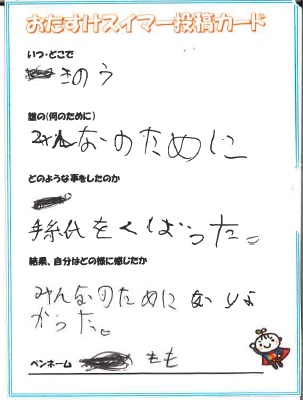 おたすけスイマー投稿カード
いつ・どこで
きのう
誰の(何のために)
みんなのために
どのような事をしたのか
手紙をくばった。
結果、自分はどの様に感じたか
みんなのために
かった。
ペンネーム もも